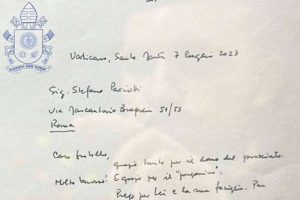 Vaticano, Santa Marta 7 luglio 2023
Sig. Stefano
Via Marcantonio 51/53
Roma
Caro fratello,
grazie tante per il dono del prosciutto.
Molto buono! E grazie per il "pugnino".
Prego per Lei e la sua famiglia. Per